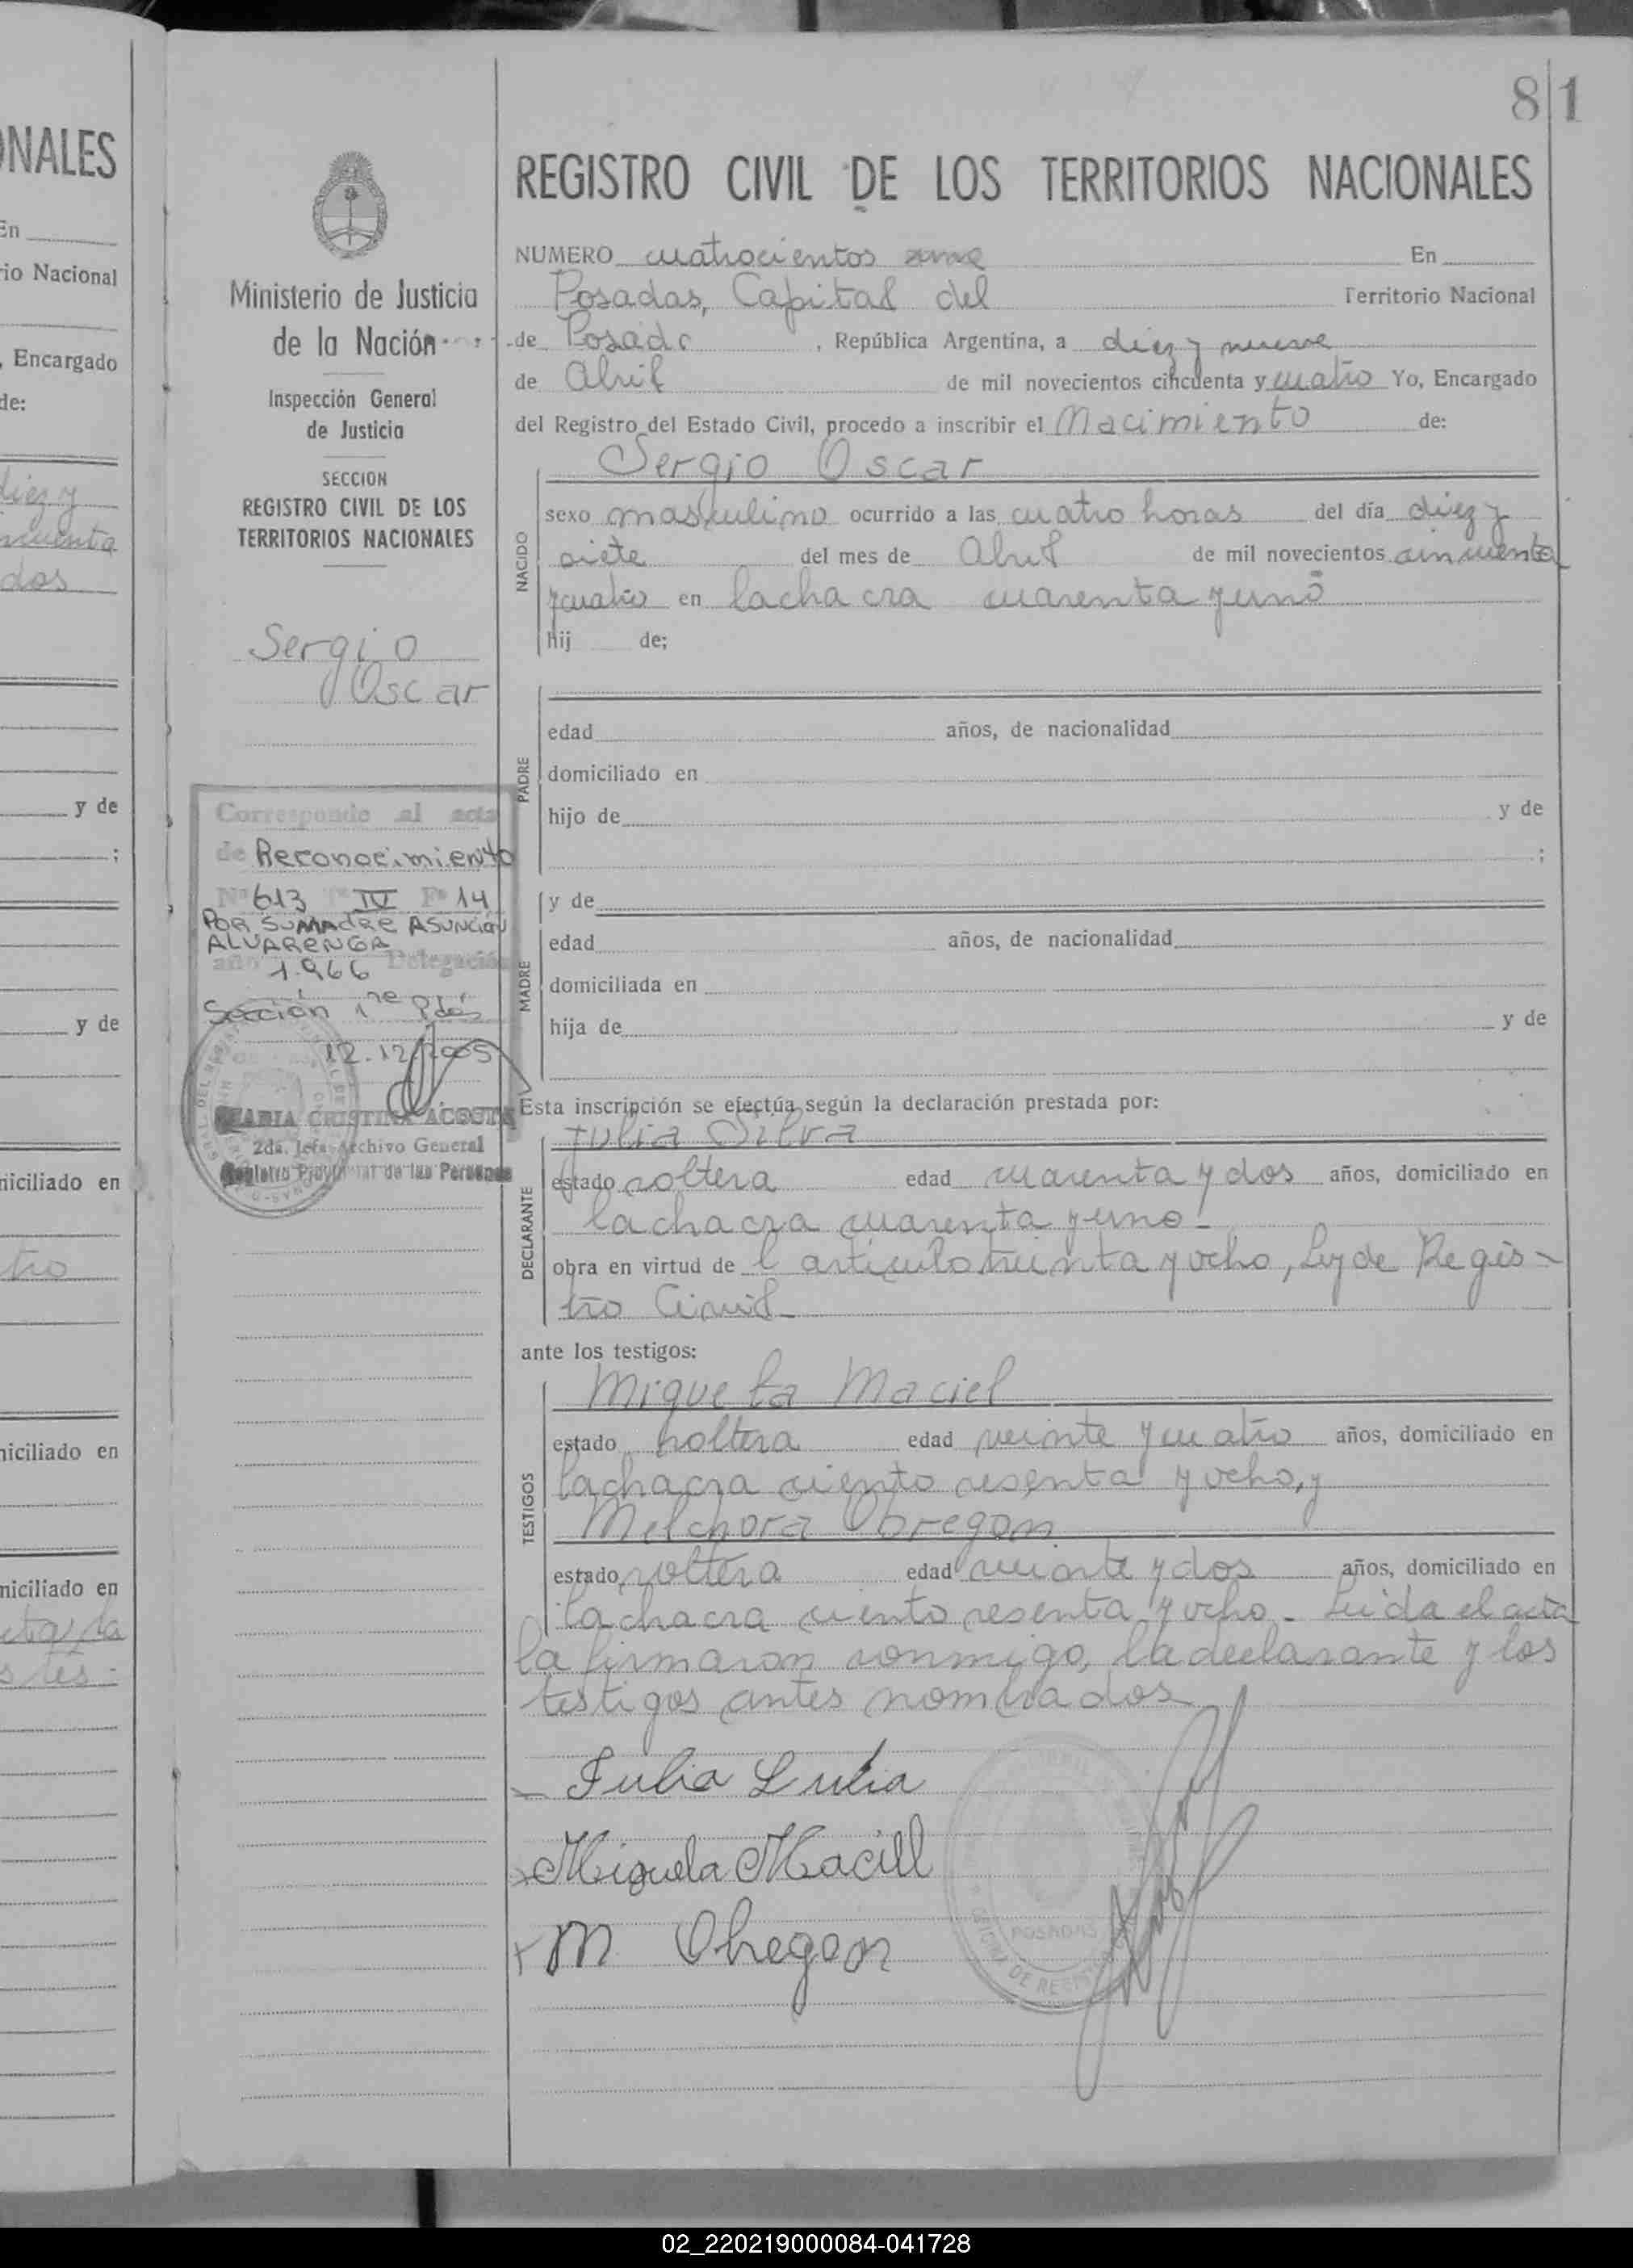 ONALES
En
rio Nacional
, Encargado
de:
diez y
ncuenta
dos
y de
;
y de
niciliado en
tro
niciliado en
niciliado en
81
Ministerio de Justicia
de la Nación
Inspección General
de Justicia
SECCION
REGISTRO CIVIL DE LOS
TERRITORIOS NACIONALES
Sergio
Oscar
Corresponde al acta
de Reconocimiento
Nº 613 Tº IV Fº 14
POR SU MADRE ASUNCIÓN
ALVARENGA
año 1.966 Delegación
Sección 1ra Pdas
12.12.2005
MARIA CRISTINA ACOSTA
2da. Jefa Archivo General
Registro Provincial de las Personas
REGISTRO CIVIL DE LOS TERRITORIOS NACIONALES
NUMERO cuatrocientos En
Posadas, Capital del Territorio Nacional
de Posadas, República Argentina, a diez y nueve
de Abril de mil novecientos cincuenta y cuatro Yo, Encargado
del Registro del Estado Civil, procedo a inscribir el Nacimiento de:
Sergio Oscar
NACIDO
sexo maskulino ocurrido a las cuatro horas del día diez y
siete del mes de Abril de mil novecientos cincuenta
y cuatro en la chacra cuarenta y uno
hij de;
PADRE
edad años, de nacionalidad
domiciliado en
hijo de y de
;
MADRE
y de
edad años, de nacionalidad
domiciliada en
hija de y de
Esta inscripción se efectúa según la declaración prestada por:
Julia Silva
DECLARANTE
estado soltera edad cuarenta y dos años, domiciliado en
la chacra cuarenta y uno.
obra en virtud de l articulo treinta y ocho, Ley de Regis-
tro Civil
ante los testigos:
TESTIGOS
Miguela Maciel
estado soltera edad veinte y cuatro años, domiciliado en
la chacra ciento sesenta y ocho, y
Melchora Obregon
estado soltera edad veinte y dos años, domiciliado en
la chacra ciento sesenta y ocho. Leida el acta
la firmaron conmigo, la declarante y los
testigos antes nombrados
Julia
Miguela Macill
M Obregon
POSADAS
02_220219000084-041728